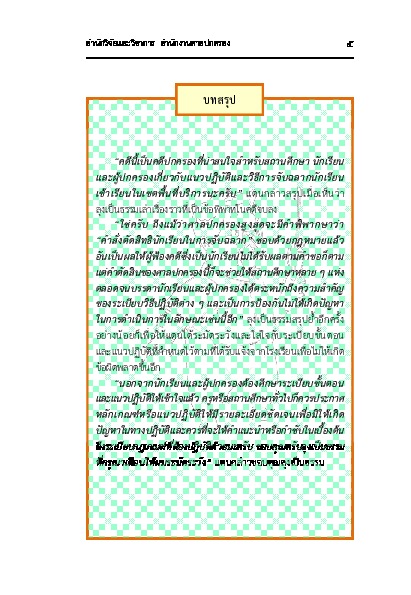 สำนักวิจัยและวิชาการ สำนักงานศาลปกครอง ๕
บทสรุป
"คดีนี้เป็นคดีปกครองที่น่าสนใจสำหรับสถานศึกษา นักเรียน
และผู้ปกครองเกี่ยวกับแนวปฏิบัติและวิธีการจับฉลากนักเรียน
เข้าเรียนในเขตพื้นที่บริการนะครับ" แดนกล่าวสรุปเมื่อเห็นว่า
ลุงเป็นธรรมเล่าเรื่องราวที่เป็นข้อพิพาทในคดีจบลง
"ใช่ครับ ถึงแม้ว่าศาลปกครองสูงสุดจะมีคำพิพากษาว่า
"คำสั่งตัดสิทธินักเรียนในการจับฉลาก" ชอบด้วยกฎหมายแล้ว
อันเป็นผลให้ผู้ฟ้องคดีซึ่งเป็นนักเรียนไม่ได้รับผลตามคำขอก็ตาม
แต่คำตัดสินของศาลปกครองนี้ก็จะช่วยให้สถานศึกษาหลาย ๆ แห่ง
ตลอดจนบรรดานักเรียนและผู้ปกครองได้ตระหนักถึงความสำคัญ
ของระเบียบวิธีปฏิบัติต่าง ๆ และเป็นการป้องกันไม่ให้เกิดปัญหา
ในการดำเนินการในลักษณะเช่นนี้อีก" ลุงเป็นธรรมสรุปย้ำอีกครั้ง
อย่างน้อยก็เพื่อให้แดนได้ระมัดระวังและใส่ใจกับระเบียบขั้นตอน
และแนวปฏิบัติที่กำหนดไว้ตามที่ได้รับแจ้งจากโรงเรียนเพื่อไม่ให้เกิด
ข้อผิดพลาดขึ้นอีก
"นอกจากนักเรียนและผู้ปกครองต้องศึกษาระเบียบขั้นตอน
และแนวปฏิบัติให้เข้าใจแล้ว ครูหรือสถานศึกษาทั่วไปก็ควรประกาศ
หลักเกณฑ์หรือแนวปฏิบัติให้มีรายละเอียดชัดเจนเพื่อมิให้เกิด
ปัญหาในทางปฏิบัติและควรที่จะให้คำแนะนำหรือกำชับในเบื้องต้น
ถึงระเบียบกฎเกณฑ์ที่ต้องปฏิบัติด้วยนะครับ ขอบคุณครับลุงเป็นธรรม
ที่กรุณาเตือนให้ผมระมัดระวัง" แดนกล่าวขอบคุณลุงเป็นธรรม